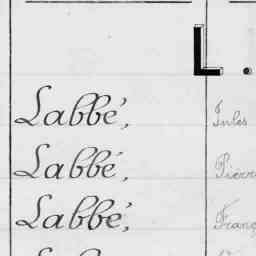 L.
Labbé, Jules
Labbé, Pierre
Labbé,